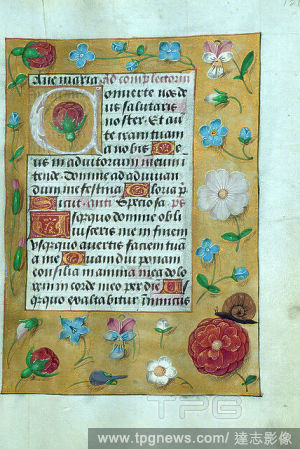 Aue maria Ad complectorium
Conuerte nos de
us salutaris
noster. Et auer
te iram tuam
a nobis De
us in adiutorium meum in
tende. Domine ad adiuuan
dum me festina Gloria p
Sicut anti Ps
Usquequo domine obli
uisceris me in finem
usquequo auertis faciem tuam
a me Quamdiu ponam
consilia in anima mea dolo
rem in corde meo per die
quo exaltabitur inimicus
TPG
www.tpgnews.com/ 達志影像